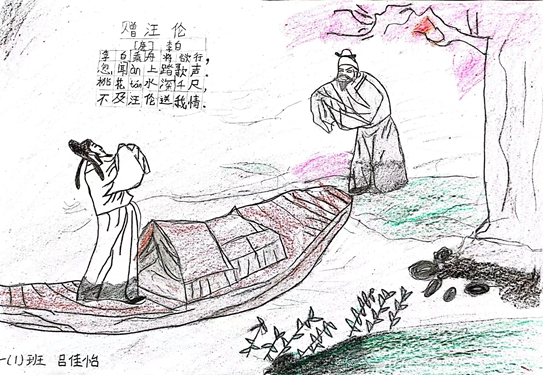 赠汪伦
[唐] 李白
李白乘舟将欲行，
忽闻àn上踏歌声。
桃花tán水深千尺，
不及汪伦送我情。
一(1)班 吕佳怡